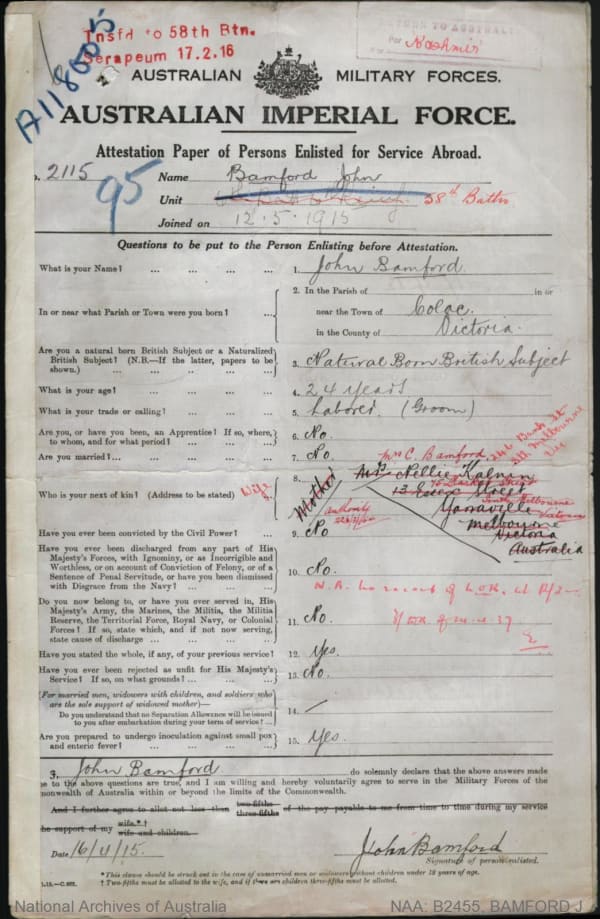 Tnsfd to 58th Btn.
Serapeum 17.2.16
RETURN TO AUSTRALIA
Per Kashmir
A118005
AUSTRALIAN MILITARY FORCES.
AUSTRALIAN IMPERIAL FORCE.
Attestation Paper of Persons Enlisted for Service Abroad.
2115
95
Name Bamford John
Unit 58th Battn
Joined on 12.5.1915
Questions to be put to the Person Enlisting before Attestation.
What is your Name? ... ... ... ... 1. John Bamford.
In or near what Parish or Town were you born? ... 2. In the Parish of in or
near the Town of Colac.
in the County of Victoria.
Are you a natural born British Subject or a Naturalized
British Subject? (N.B.—If the latter, papers to be
shown.) ... ... ... ... 3. Natural Born British Subject
What is your age? ... ... ... ... 4. 24 years
What is your trade or calling? ... ... ... 5. Laborer. (Groom)
Are you, or have you been, an Apprentice? If so, where,
to whom, and for what period? ... ... ... 6. No.
Are you married?... ... ... ... 7. No.
Mrs C. Bamford
246 Bank St
Sth Melbourne
Vic
Who is your next of kin? (Address to be stated) Wife 8. Mother Mrs Nellie Kalnin
13 Essex Street
South Melbourne
Victoria
Yarraville
Melbourne
Victoria
Australia
Have you ever been convicted by the Civil Power? ... 9. No
Have you ever been discharged from any part of His
Majesty's Forces, with Ignominy, or as Incorrigible and
Worthless, or on account of Conviction of Felony, or of a
Sentence of Penal Servitude, or have you been dismissed
with Disgrace from the Navy? ... ... ... 10. No.
Do you now belong to, or have you ever served in, His
Majesty's Army, the Marines, the Militia, the Militia
Reserve, the Territorial Force, Royal Navy, or Colonial
Forces? If so, state which, and if not now serving,
state cause of discharge ... ... ... 11. No.
Have you stated the whole, if any, of your previous service? 12. Yes.
Have you ever been rejected as unfit for His Majesty's
Service? If so, on what grounds? ... ... ... 13. No.
(For married men, widowers with children, and soldiers who
are the sole support of widowed mother)—
Do you understand that no Separation Allowance will be issued
to you after embarkation during your term of service? ... 14. /
Are you prepared to undergo inoculation against small pox
and enteric fever? ... ... ... ... 15. Yes.
3. John Bamford do solemnly declare that the above answers made
me to the above questions are true, and I am willing and hereby voluntarily agree to serve in the Military Forces of the
monwealth of Australia within or beyond the limits of the Commonwealth.
And I further agree to allot not less than two-fifths three-fifths of the pay payable to me from time to time during my service
the support of my wife.*†
wife and children.
Date 16/4/15. John Bamford
Signature of person enlisted.
*This clause should be struck out in the case of unmarried men or widowers without children under 18 years of age.
† Two-fifths must be allotted to the wife, and if there are children three-fifths must be allotted.
National Archives of Australia NAA: B2455, BAMFORD J